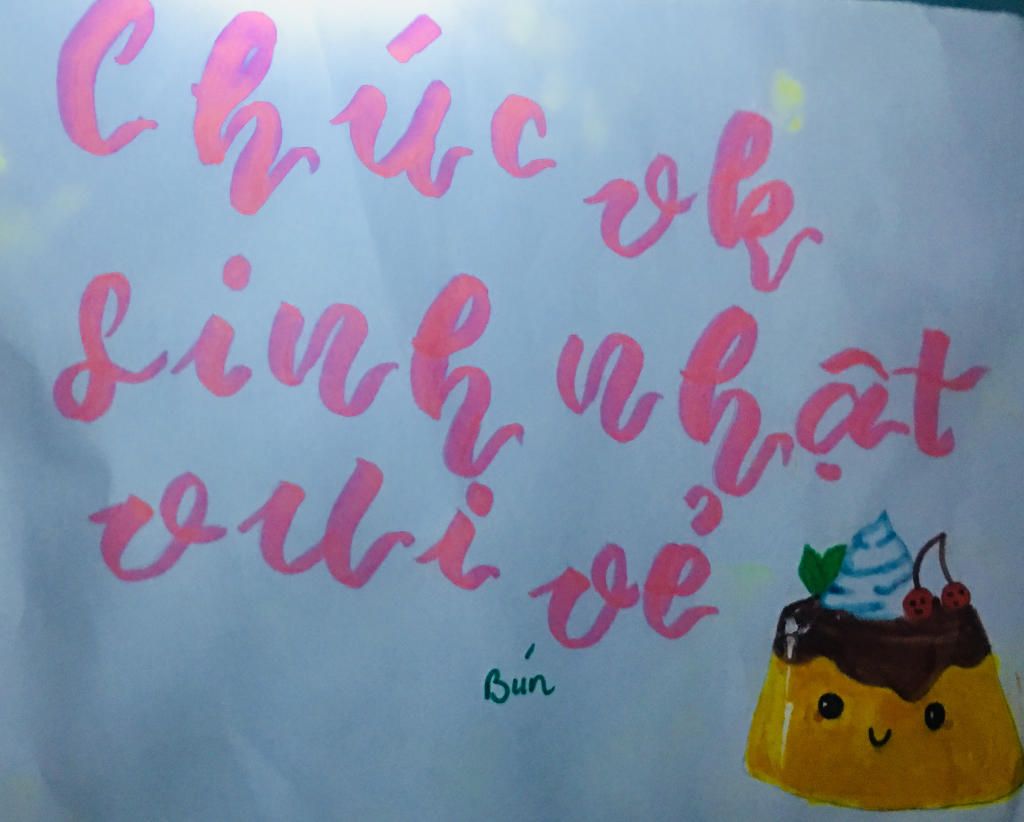 Chúc vk
sinh nhật
vui vẻ
Bún